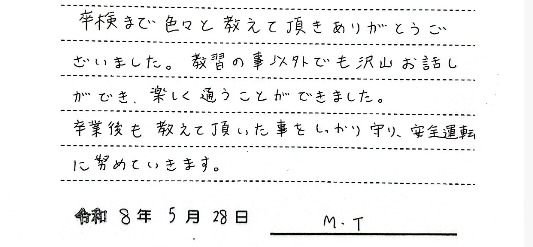 卒検まで色々と教えて頂きありがとうご
ざいました。教習の事以外でも沢山お話し
ができ、楽しく通うことができました。
卒業後も教えて頂いた事をしっかり守り、安全運転
に努めていきます。
令和 8年 5月 28日 M.T